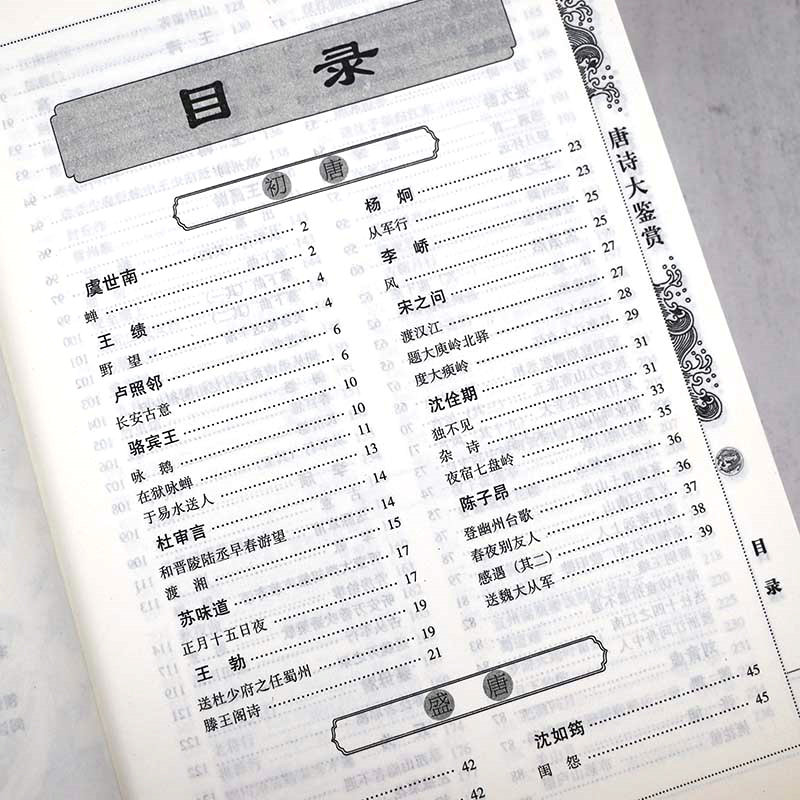 目 录
初 唐
虞世南……2
蝉……2
王 绩……4
野 望……4
卢照邻……6
长安古意……6
骆宾王……10
咏 鹅……10
在狱咏蝉……11
于易水送人……13
杜审言……14
和晋陵陆丞早春游望……14
渡 湘……15
苏味道……17
正月十五日夜……17
王 勃……19
送杜少府之任蜀州……19
滕王阁诗……21
杨 炯……23
从军行……23
李 峤……25
风……25
宋之问……27
渡汉江……27
题大庾岭北驿……28
度大庾岭……29
沈佺期……31
独不见……31
杂 诗……33
夜宿七盘岭……35
陈子昂……36
登幽州台歌……36
春夜别友人……37
感遇（其二）……38
送魏大从军……39
盛 唐
……42
……42
沈如筠……45
闺 怨……45
唐诗大鉴赏
目录